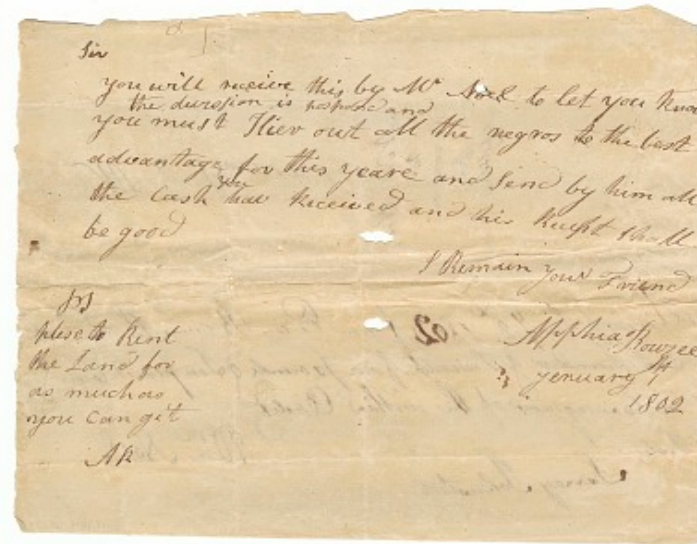 Sir
you will receive this by Mr Noel to let you know
the divission is postpond and
you must Hier out all the negros to the best
advantage for this yeare and Send by him all
the Cash you hav Received and his Recipt shall
be good
I Remain your Friend
Apphia Rowzee
Jenuary
1802
PS
plese to Rent
the Land for
as much as
you can git
AR